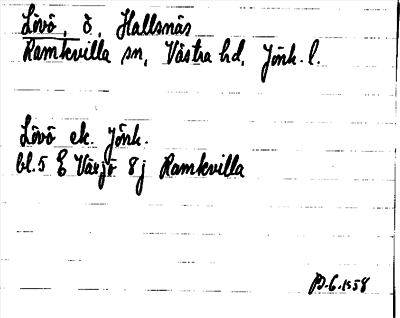 Lövö, ö, Hallsnäs
Ramkvilla sn, Västra hd, Jönk. l.
Lövö ek. Jönk.
bl. 5 E Växjö 8j Ramkvilla
B.G. 1958